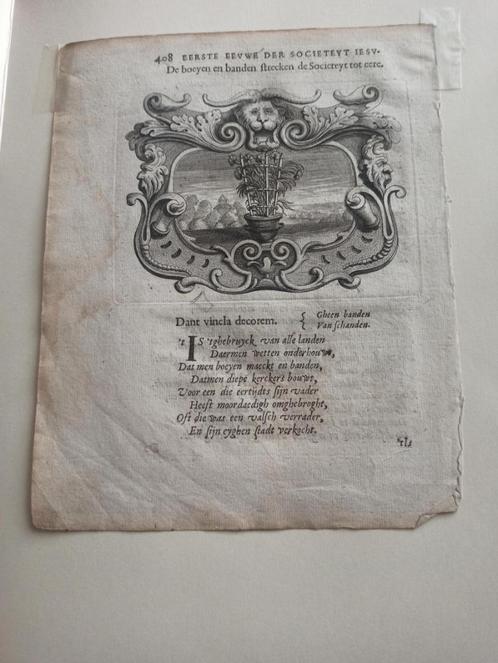 408 EERSTE EEVWE DER SOCIETEYT IESV.
De boeyen en banden strecken de Societeyt tot eere.
Dant vincla decorem. { Gheen banden
Van schanden.
't IS 'tghebruyck van alle landen
Daermen wetten onderhouwt,
Dat men boeyen maeckt en banden,
Datmen diepe kerckers bouwt,
Voor een die eertijdts sijn vader
Heeft moordaedigh omghebroght,
Oft die was een valsch verrader,
En sijn eyghen stadt verkocht.